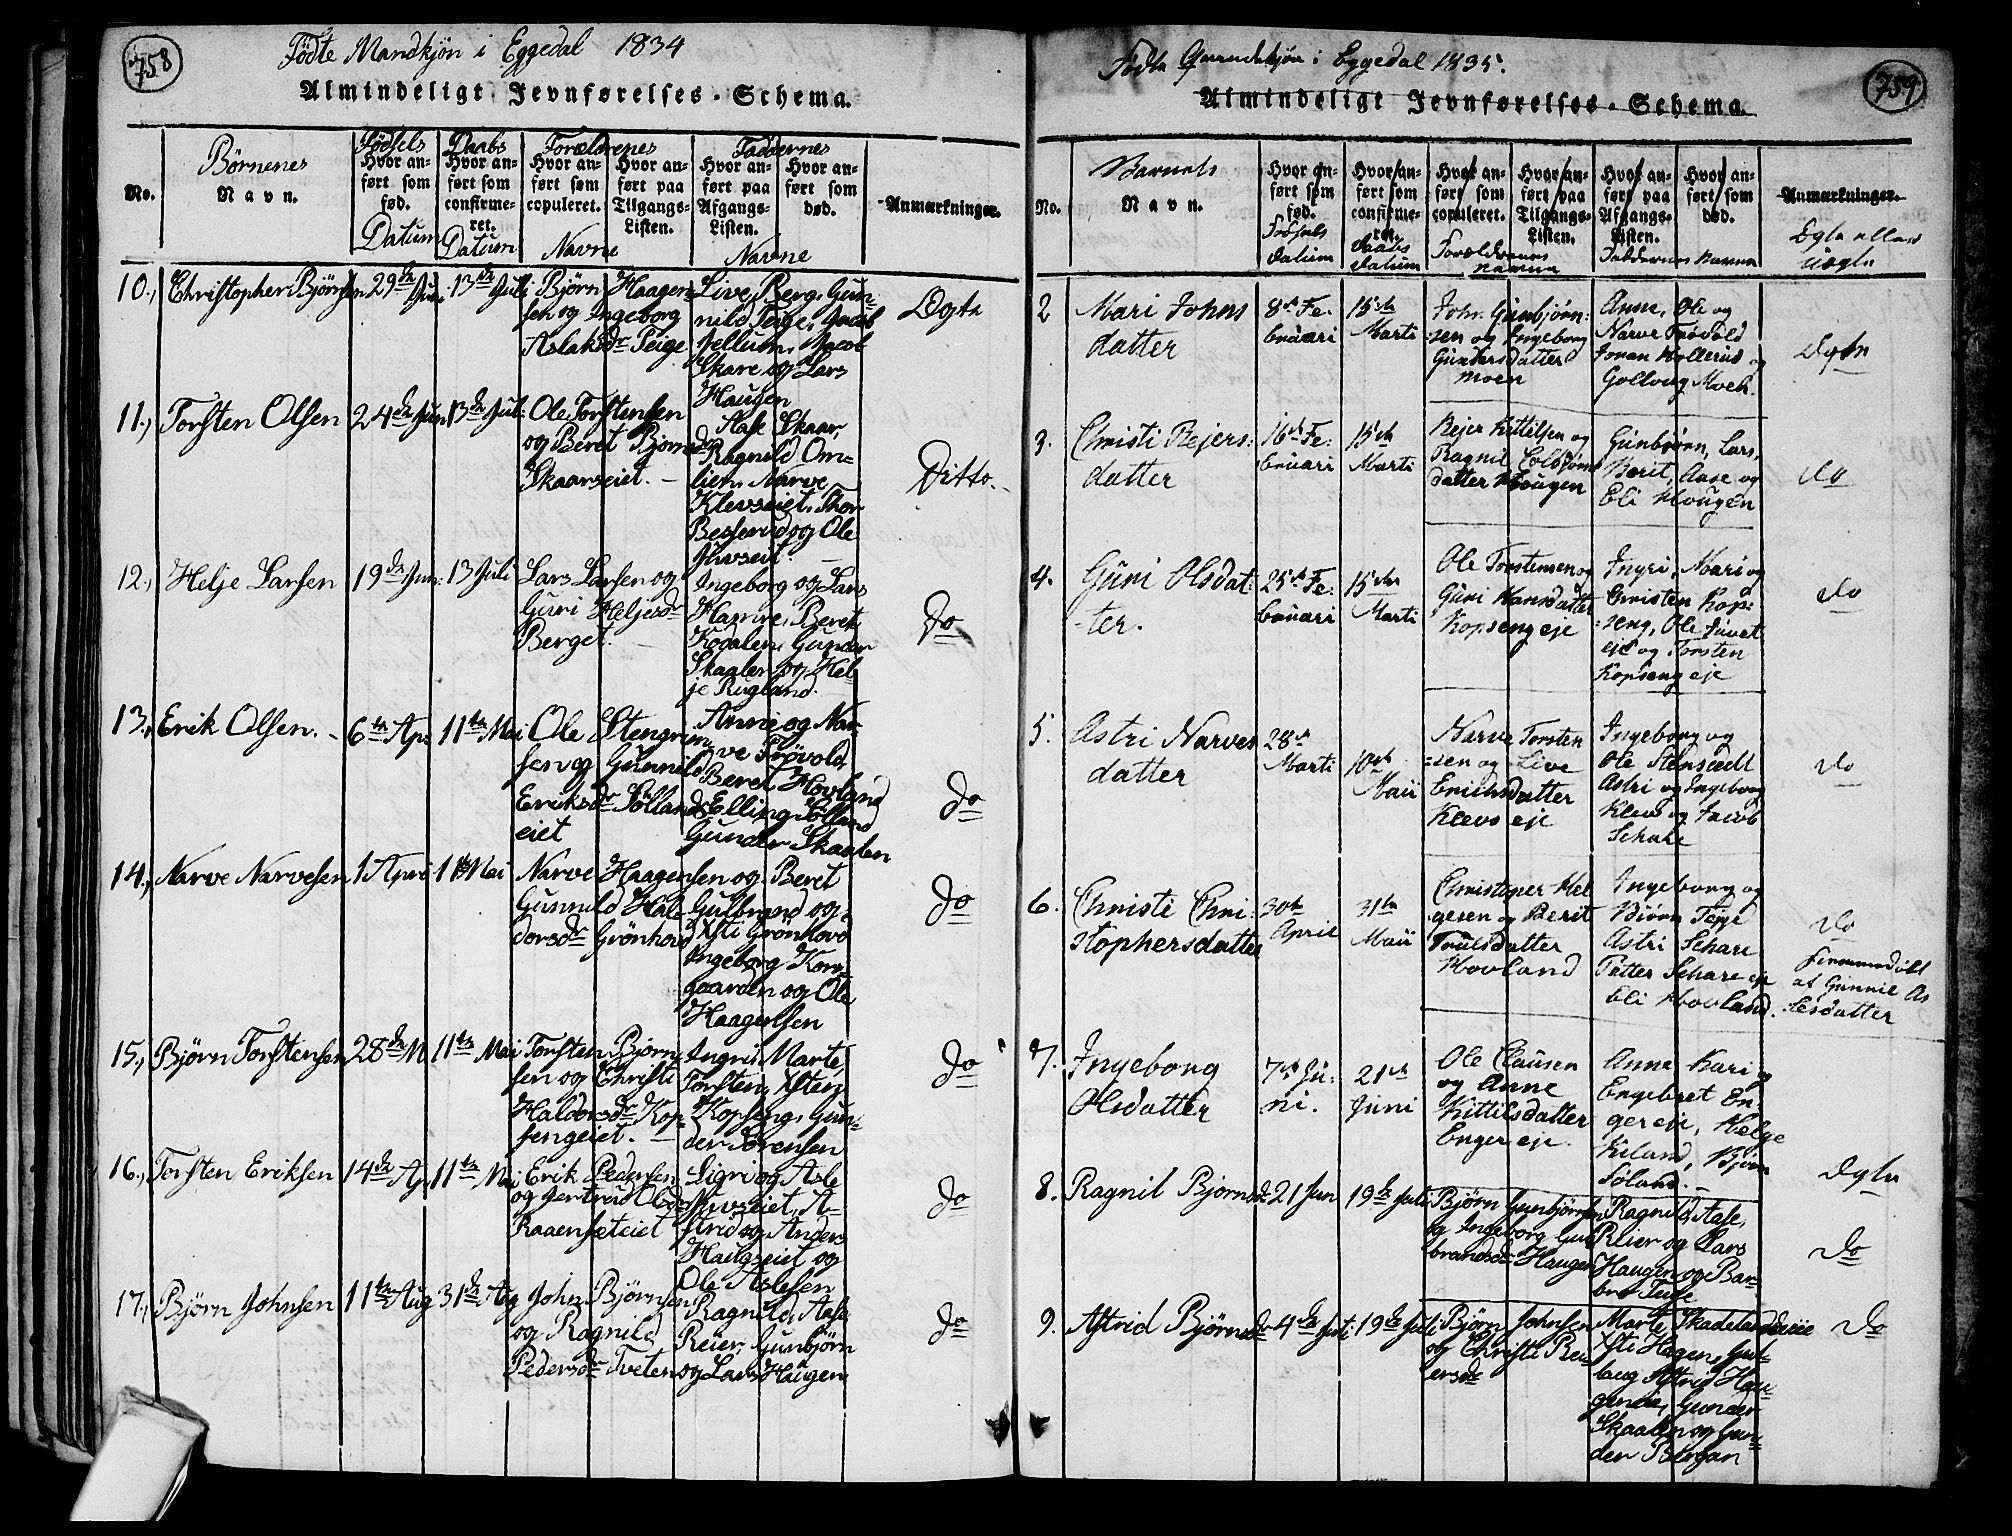 758
Födte Mandkjön i Eggedal 1834
Almindeligt Jevnførelses-Schema.
No.
Børnenes
Navn.
Fødsels
Hvor an-
ført som
fød.
Datum
Daabs
Hvor an-
ført som
confirme-
ret.
Datum
Forældrenes
Hvor an-
ført som
copuleret.
Hvor an-
ført paa
Tilgangs-
Listen.
Navne
Faddernes
Hvor an-
ført paa
Afgangs-
Listen.
Hvor an-
ført som
død.
Navne
Anmærkninger.
10., Christopher Bjørnsen 29de Jun. 13de Juli
Bjørn Haagen-
sen og Ingeborg
Aslaksdr Teige
Live Berg, Gun-
nild Teige, Jacob
Nellum, Jacob
Skare og Lars
Haugen
Ægte
11., Torsten Olsen 24de Jun 13de Jul.
Ole Torstensen
og Beret Bjørnsdr
Skaarseiet.
Aase Skaar,
Ragnild Om-
lien, Narve
Klevseiet, Thor
Besserud og Ole
Juvseit.
Ditto.
12., Helje Larsen 19de Jun. 13 Juli
Lars Larsen og
Guri Heljesdr
Berget.
Ingeborg og Lars
Hamre, Beret
Kodalen, Gunder
Skaalen og Hel-
je Rugland.
do
13., Erik Olsen. 6te Ap. 11te Mai
Ole Stengrim-
sen og Gunnild
Eriksdr Sølland-
eiet
Anne og Nar-
ve Frövold,
Beret Hovland
Elling Sølland
Gunder Skaalen
do
14., Narve Narvesen 1 Apri 11te Mai
Narve Haagensen og
Gunnild Hal-
dorsdr Grønhovd
Beret
Gulbrand og
Xsti Grønhovd
Ingeborg Kors-
gaarden og Ole
Haagensen
do
15., Bjørn Torstensen 28de M. 11te Mai
Torsten Bjørn-
sen og Christi
Haldorsdr Kop-
sengeiet.
Ingri, Marte,
Torsten, Xsten
Kopseng, Gun-
der Sorensen
do
16., Torsten Eriksen 14de Ap. 11te Mai
Erik Pedersen
og Jertrud Olsdr
Raaensæteiet
Sigri og Asle
Juvseiet, A-
strid og Anders
Haugseiet og
Ole Aslesen
do
17., Bjørn Johnsen 11te Aug 31te Aug
John Bjørnsen
og Ragnild
Pedersdr Tveten
Ragnild, Aase,
Reier, Gunbjørn
og Lars Haugen
do
759
Födte Qvindekjön i Eggedal 1835.
Almindeligt Jevnførelses-Schema.
No.
Barnets
Navn.
Hvor an-
ført som
fød.
Fødsels
datum
Hvor an-
ført som
confirme-
ret.
Daabs
datum
Hvor an-
ført som
copuleret.
Hvor an-
ført paa
Tilgangs-
Listen.
Forældrenes
navne
Hvor an-
ført paa
Afgangs-
Listen.
Hvor an-
ført som
død.
Faddernes navne
Anmærkninger.
Ægte eller
Uægte
2 Mari Johns
datter
8de Fe-
bruari
15de
Marti
John Gunbjørn-
sen og Ingeborg
Gundersdatter
Moen
Anne, Ole og
Narve Frövold
Jonan Hollerud og
Gollaug Moen.
Ægte
3. Christi Rejers-
datter
16de Fe-
bruari
15de
Marti
Rejer Kittilsen og
Ragnil Colbjørns
datter Hougen
Gunbjørn, Lars,
Berit, Aase og
Eli Hougen
do
4. Guri Olsdat-
ter.
25de Fe-
bruari
15de
Marti
Ole Torstensen og
Guri Hansdatter
Kopseng eje
Ingri, Mari og
Christen Kop-
seng, Ole Juvet
eje og Torsten
Kopseng eje
do
5. Astri Narves
datter
28de
Marti
10de
Maii
Narve Torsten
sen og Live
Erichsdatter
Klevs eje
Ingeborg og
Ole Stensædt
Astri og Ingeborg
Klev og Jacob
Schare
do
6. Christi Chri-
stophersdatter
30te
April
31te
Maii
Christopher Hel
gesen og Berit
Truelsdatter
Hovland
Ingeborg og
Biørn Teige
Astri Schare
Petter Schare eje
Eli Hovland.
do
hjemmedöbt
af Gunnil As
lesdatter
7. Ingeborg
Olsdatter
7de Ju-
ni.
21de
Juni
Ole Clausen
og Anne
Kittilsdatter
Enger eje.
Anne Kari og
Engebret En-
ger eje, Helge
Kiland, Bjørn
Søland.
Ægte
8. Ragnil Bjørnsdr 21 Jun 19de Juli
Bjørn Gunbjørnsen
og Ingeborg Gul-
brandsdr Haugen
Ragnild, Aase,
Reier og Lars
Haugen og Bar-
bro Teige
do
9. Astrid Bjørnsdr 4de Juli 19de Juli
Bjørn Johnsen
og Christi Rei-
ersdr
Marte Skadelandseie
Xsti Hagen, Gul-
laug Astrid Hau-
geneie, Gunder
Skaalen og Gun-
der Bergan
do